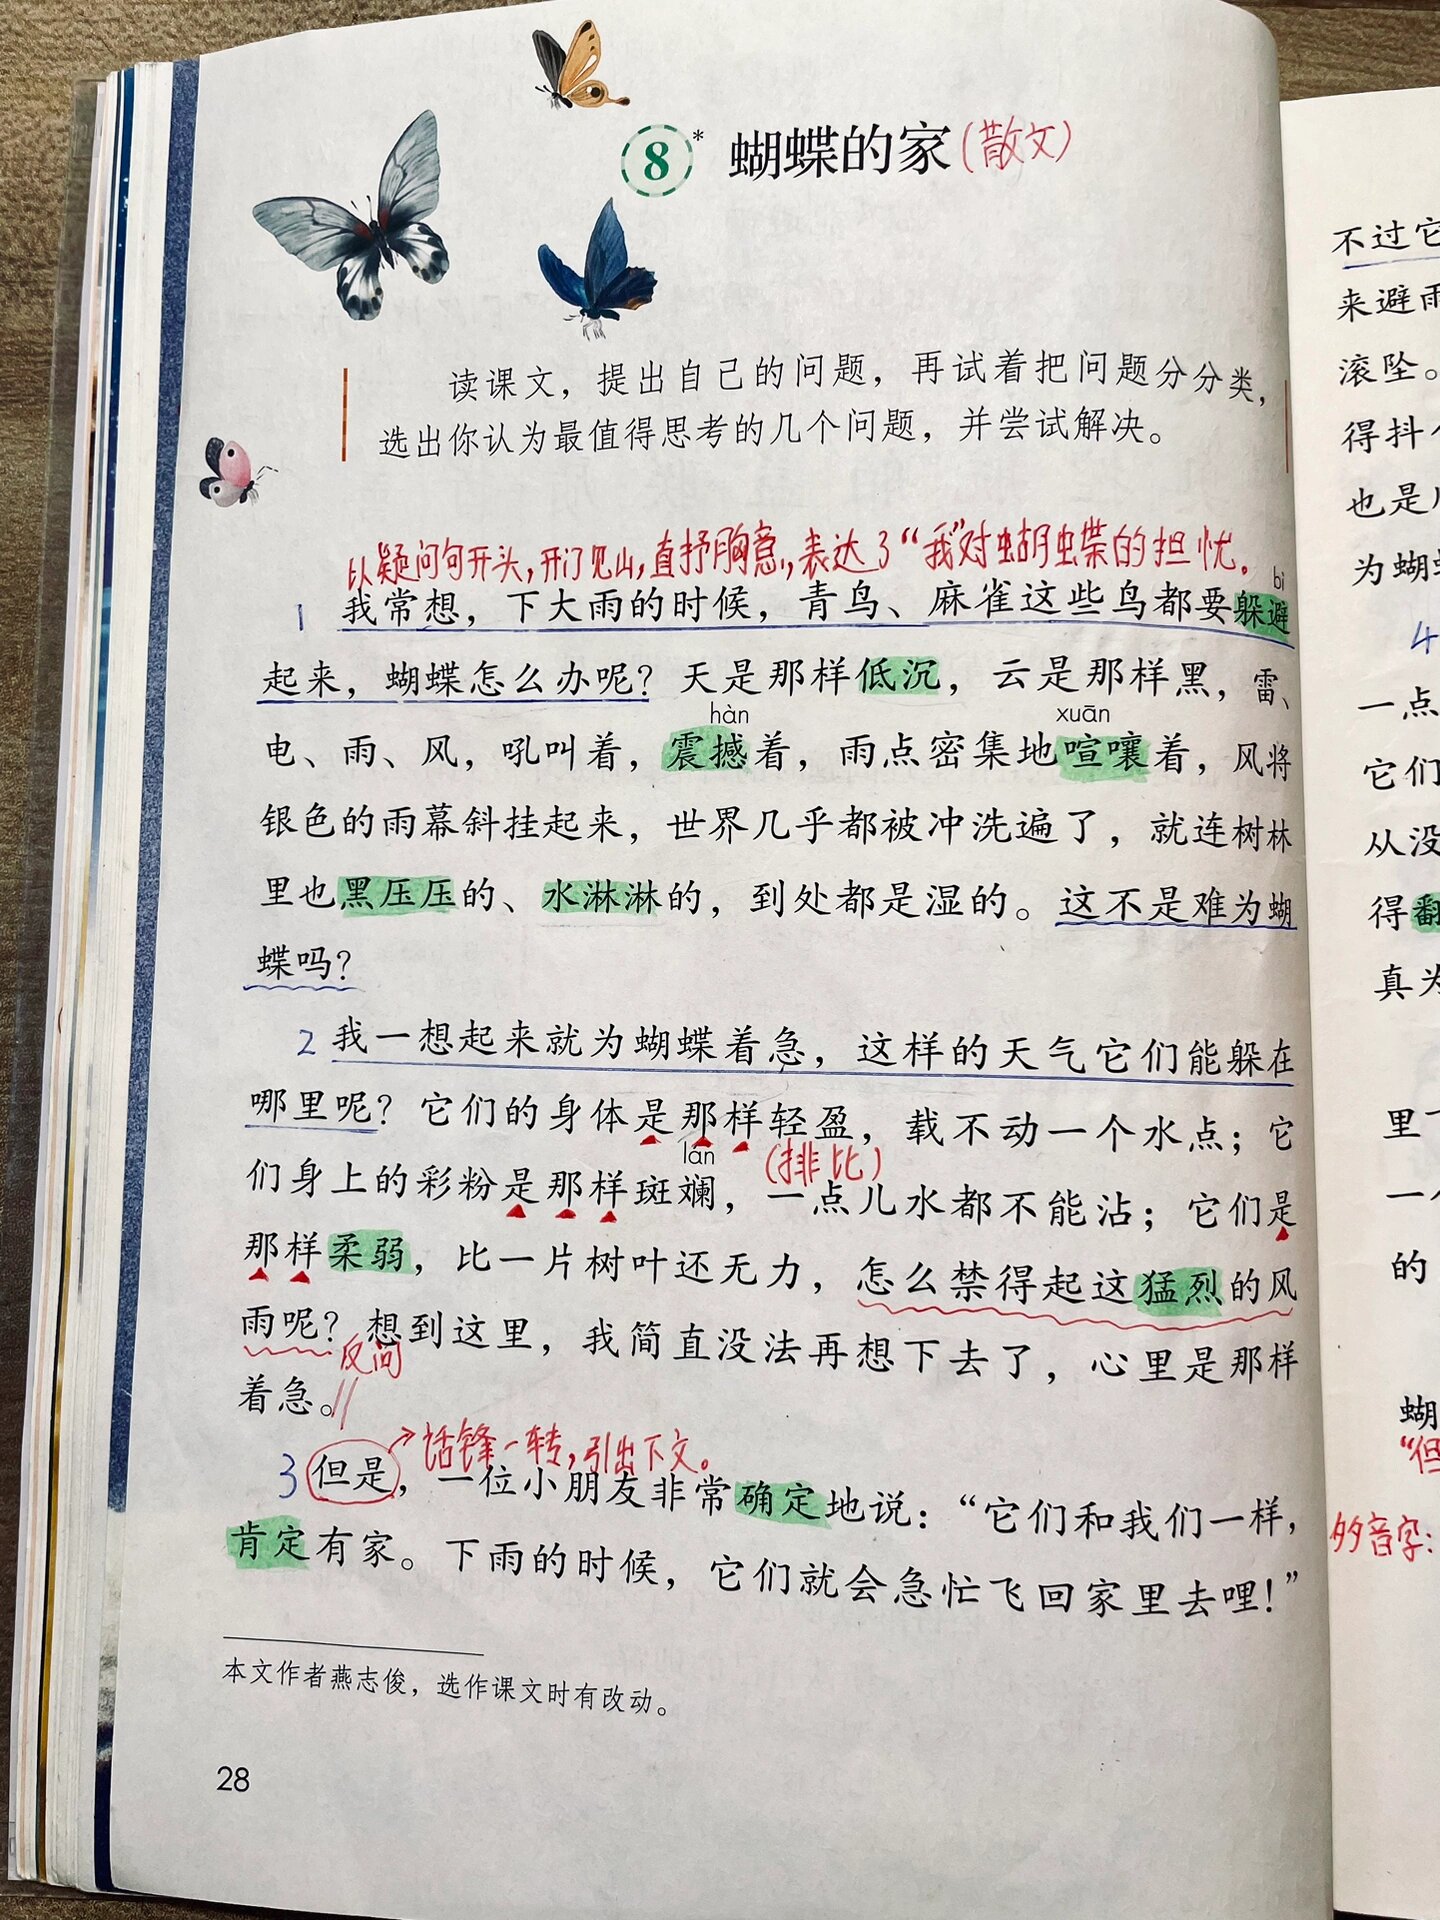 8* 蝴蝶的家(散文)
读课文，提出自己的问题，再试着把问题分分类，
选出你认为最值得思考的几个问题，并尝试解决。
以疑问句开头，开门见山，直抒胸意，表达了“我”对蝴蝶的担忧。
bì
1 我常想，下大雨的时候，青鸟、麻雀这些鸟都要躲避
起来，蝴蝶怎么办呢？天是那样低沉，云是那样黑，雷、
hàn xuān
电、雨、风，吼叫着，震撼着，雨点密集地喧嚷着，风将
银色的雨幕斜挂起来，世界几乎都被冲洗遍了，就连树林
里也黑压压的、水淋淋的，到处都是湿的。这不是难为蝴
蝶吗？
2 我一想起来就为蝴蝶着急，这样的天气它们能躲在
哪里呢？它们的身体是那样轻盈，载不动一个水点；它
lán (排比)
们身上的彩粉是那样斑斓，一点儿水都不能沾；它们是
那样柔弱，比一片树叶还无力，怎么禁得起这猛烈的风
雨呢？想到这里，我简直没法再想下去了，心里是那样
反问
着急。//
话锋一转，引出下文。
3 但是，一位小朋友非常确定地说：“它们和我们一样，
肯定有家。下雨的时候，它们就会急忙飞回家里去哩！”
本文作者燕志俊，选作课文时有改动。
28
不过它
来避雨
滚坠。
得抖
也是
为蝴
4
一点
它们
从没
得翻
真为
里
一
的
蝴
“但
多音字：